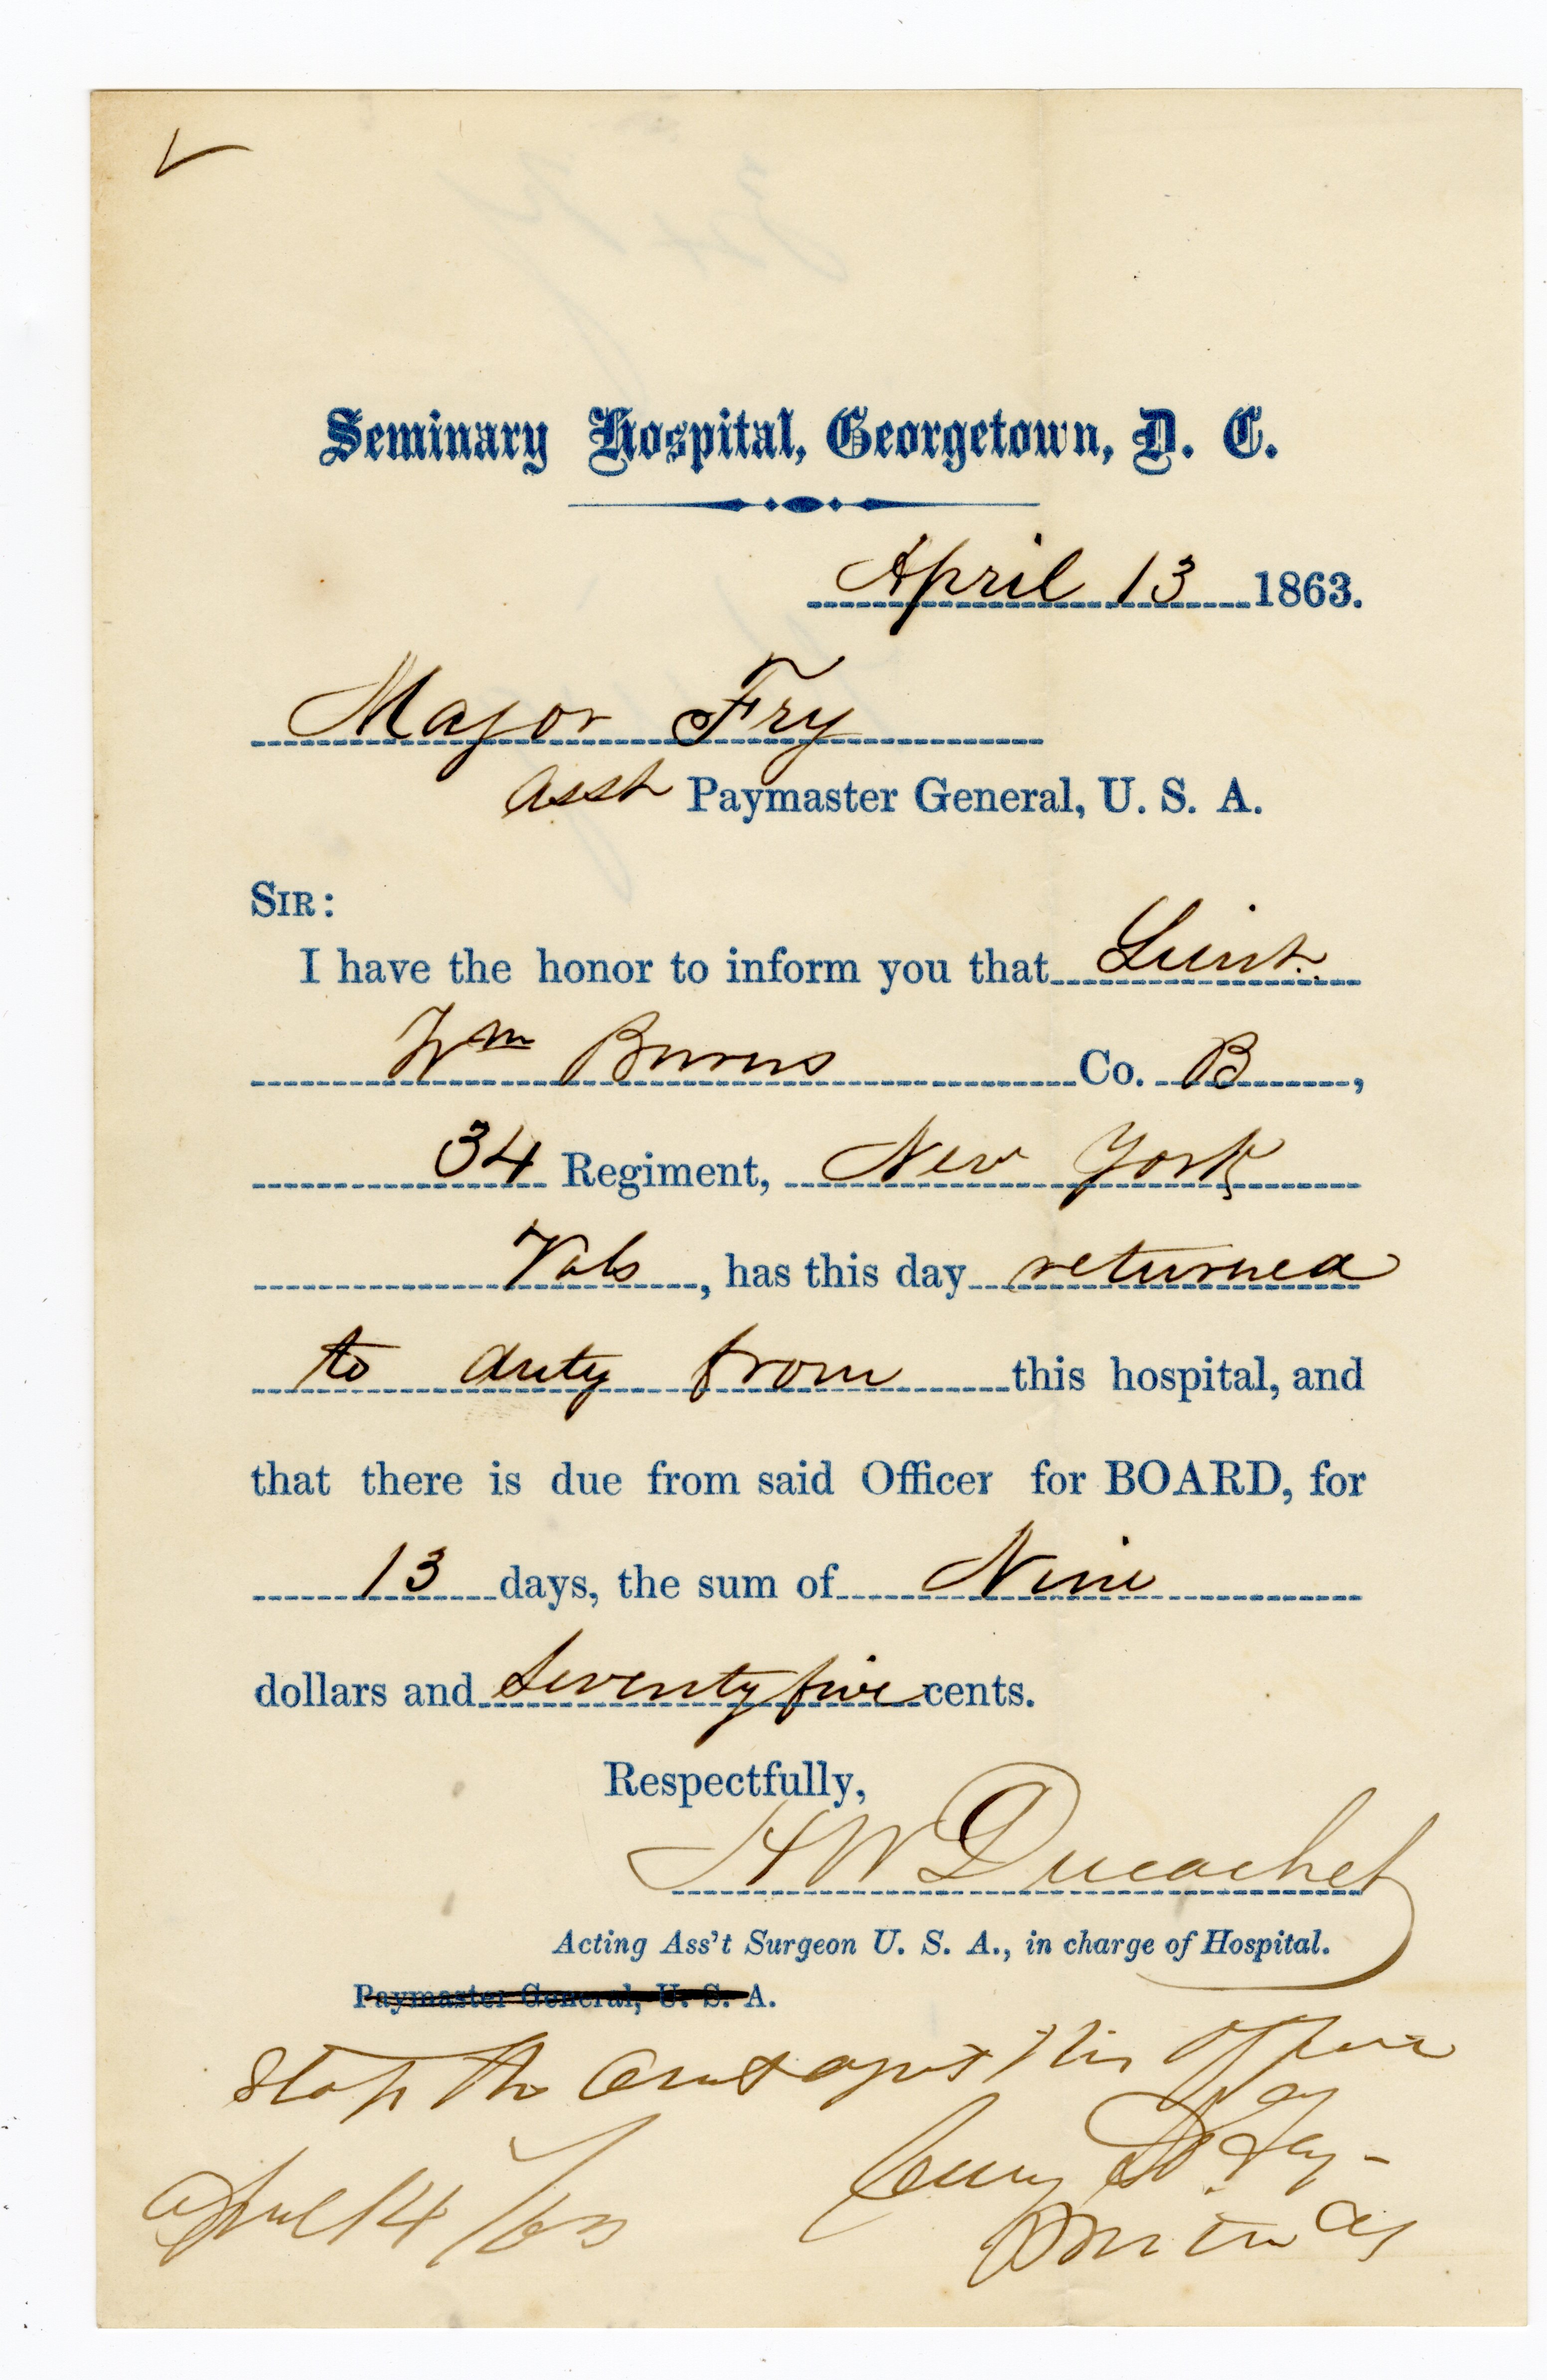 Seminary Hospital, Georgetown, D. C.
April 13 1863.
Major Fry
Asst Paymaster General, U. S. A.
SIR:
I have the honor to inform you that Lieut.
Wm Burns Co. B,
34 Regiment, New York
Vols, has this day returned
to duty from this hospital, and
that there is due from said Officer for BOARD, for
13 days, the sum of Nine
dollars and Seventy five cents.
Respectfully,
HW Ducachet
Acting Ass't Surgeon U. S. A., in charge of Hospital.
Paymaster General, U. S. A.
Stop the agst this Officer
April 14/63